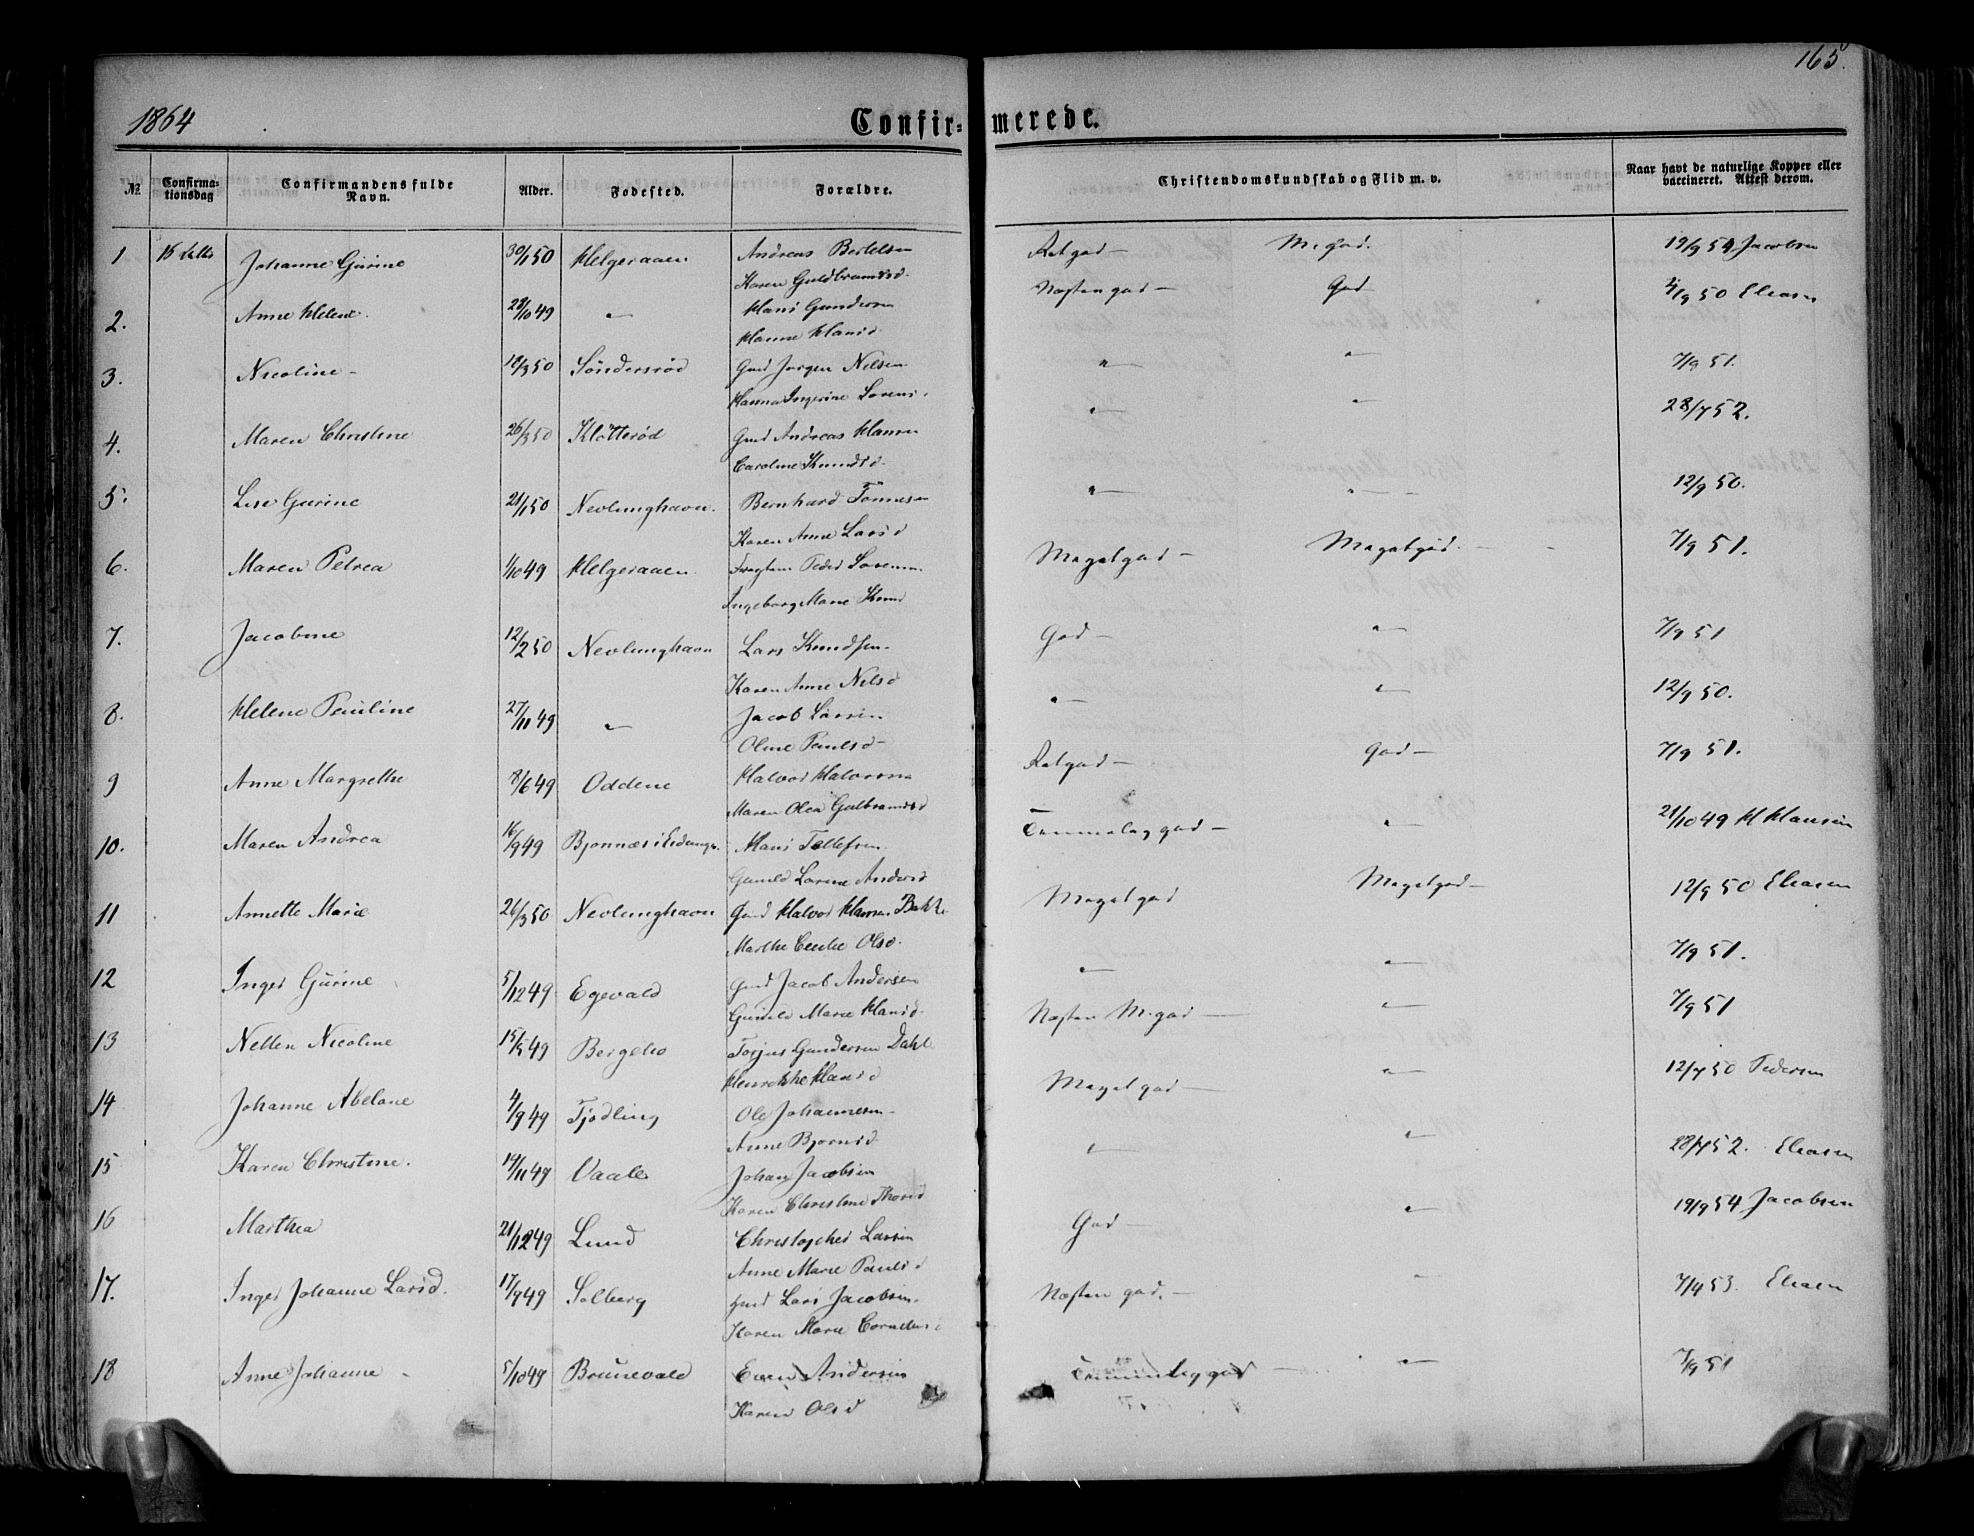 165.
1864 Confir- merede.
No. Confirma-tionsdag Confirmandens fulde Navn. Alder. Fødested. Forældre. Christendomskundskab og Flid m. v. Naar havt de naturlige Kopper eller vaccineret. Attest derom.
1 Johanne Gurine 30/1 50 Helgeraaen Andreas Bertelsen M. God. 19/9 54 Jacobsen
Karen Guldbrandsd.
2. Anne Helene 28/10 49 " Hans Gundersen Næsten god - God 50 Eliasen
Hanne Hansd.
3. Nicoline - 18/3 50 Søndersrød Gmd Jørgen Nilsen " " 7/9 51.
Hanna Ingerine Sorens
4. Maren Christine 26/3 50 Klötterød Gmd Andreas Hansen " " 28/7 52.
Caroline Knudsd.
5. Lise Gurine 21/1 50 Nevlunghavn. Bernhard Tönnesen " " 12/9 50.
Karen Anne Larsd
6. Maren Petrea 1/10 49 Helgeraaen Peder Sorensen Meget god - Meget god. - 7/9 51.
Ingeborg Marie Knud
7. Jacobine 12/2 50 Nevlunghavn Lars Knudsen. God - " 7/9 51
Karen Anne Nilsd
8. Helene Pauline 27/11 49 " Jacob Larsen " " 12/9 50.
Oline Paulsd -
9 Anne Margrethe 8/6 49 Oddene Halvor Halvorsen God - 7/9 51.
Maren Olea Gulbrandsd
10. Maren Andrea 16/9 49 Bjonnæs i Eidanger. Hans Tellefsen Temmelig god - " 21/10 49 H Hansen
Gunild Larine Andersd
11 Annette Marie 26/3 50 Nevlunghavn Gmd Halvor Hansen Bakke Meget god Meget god - 12/9 50 Eliasen
Marthe Cecilie Olsd.
12 Inger Gurine 5/12 49 Egevald Gmd Jacob Andersen " " 7/9 51.
Gunild Marie Hansd.
13 Nellen Nicoline 15/5 49 Torjus Gundersen Dahle Næsten M. god " 7/9 51
Henrikke Hansd
14 Johanne Abelone 4/9 49 Tjodling Ole Johannesen - Meget god " 12/7 50 Pedersen
Anne Bjørnsd.
15 Karen Christine. 14/11 49 Vaale Johan Jacobsen " " 28/7 52. Eliasen
Karen Christine Thorsd
16 Marthea 21/12 49 Lund Christopher Larsen God - " 19/9 54 Jacobsen
Anne Marie Paulsd
17. Inger Johanne Larsd. 17/9 49 Solberg Gmd Lars Jacobsen. Næsten god. - " 7/4 53. Eliasen
Karen Marie Cornelius
18 Anne Johanne 5/10 49 Brunevald Even Andersen Temmelig god - " 7/9 51
Karen Olsd